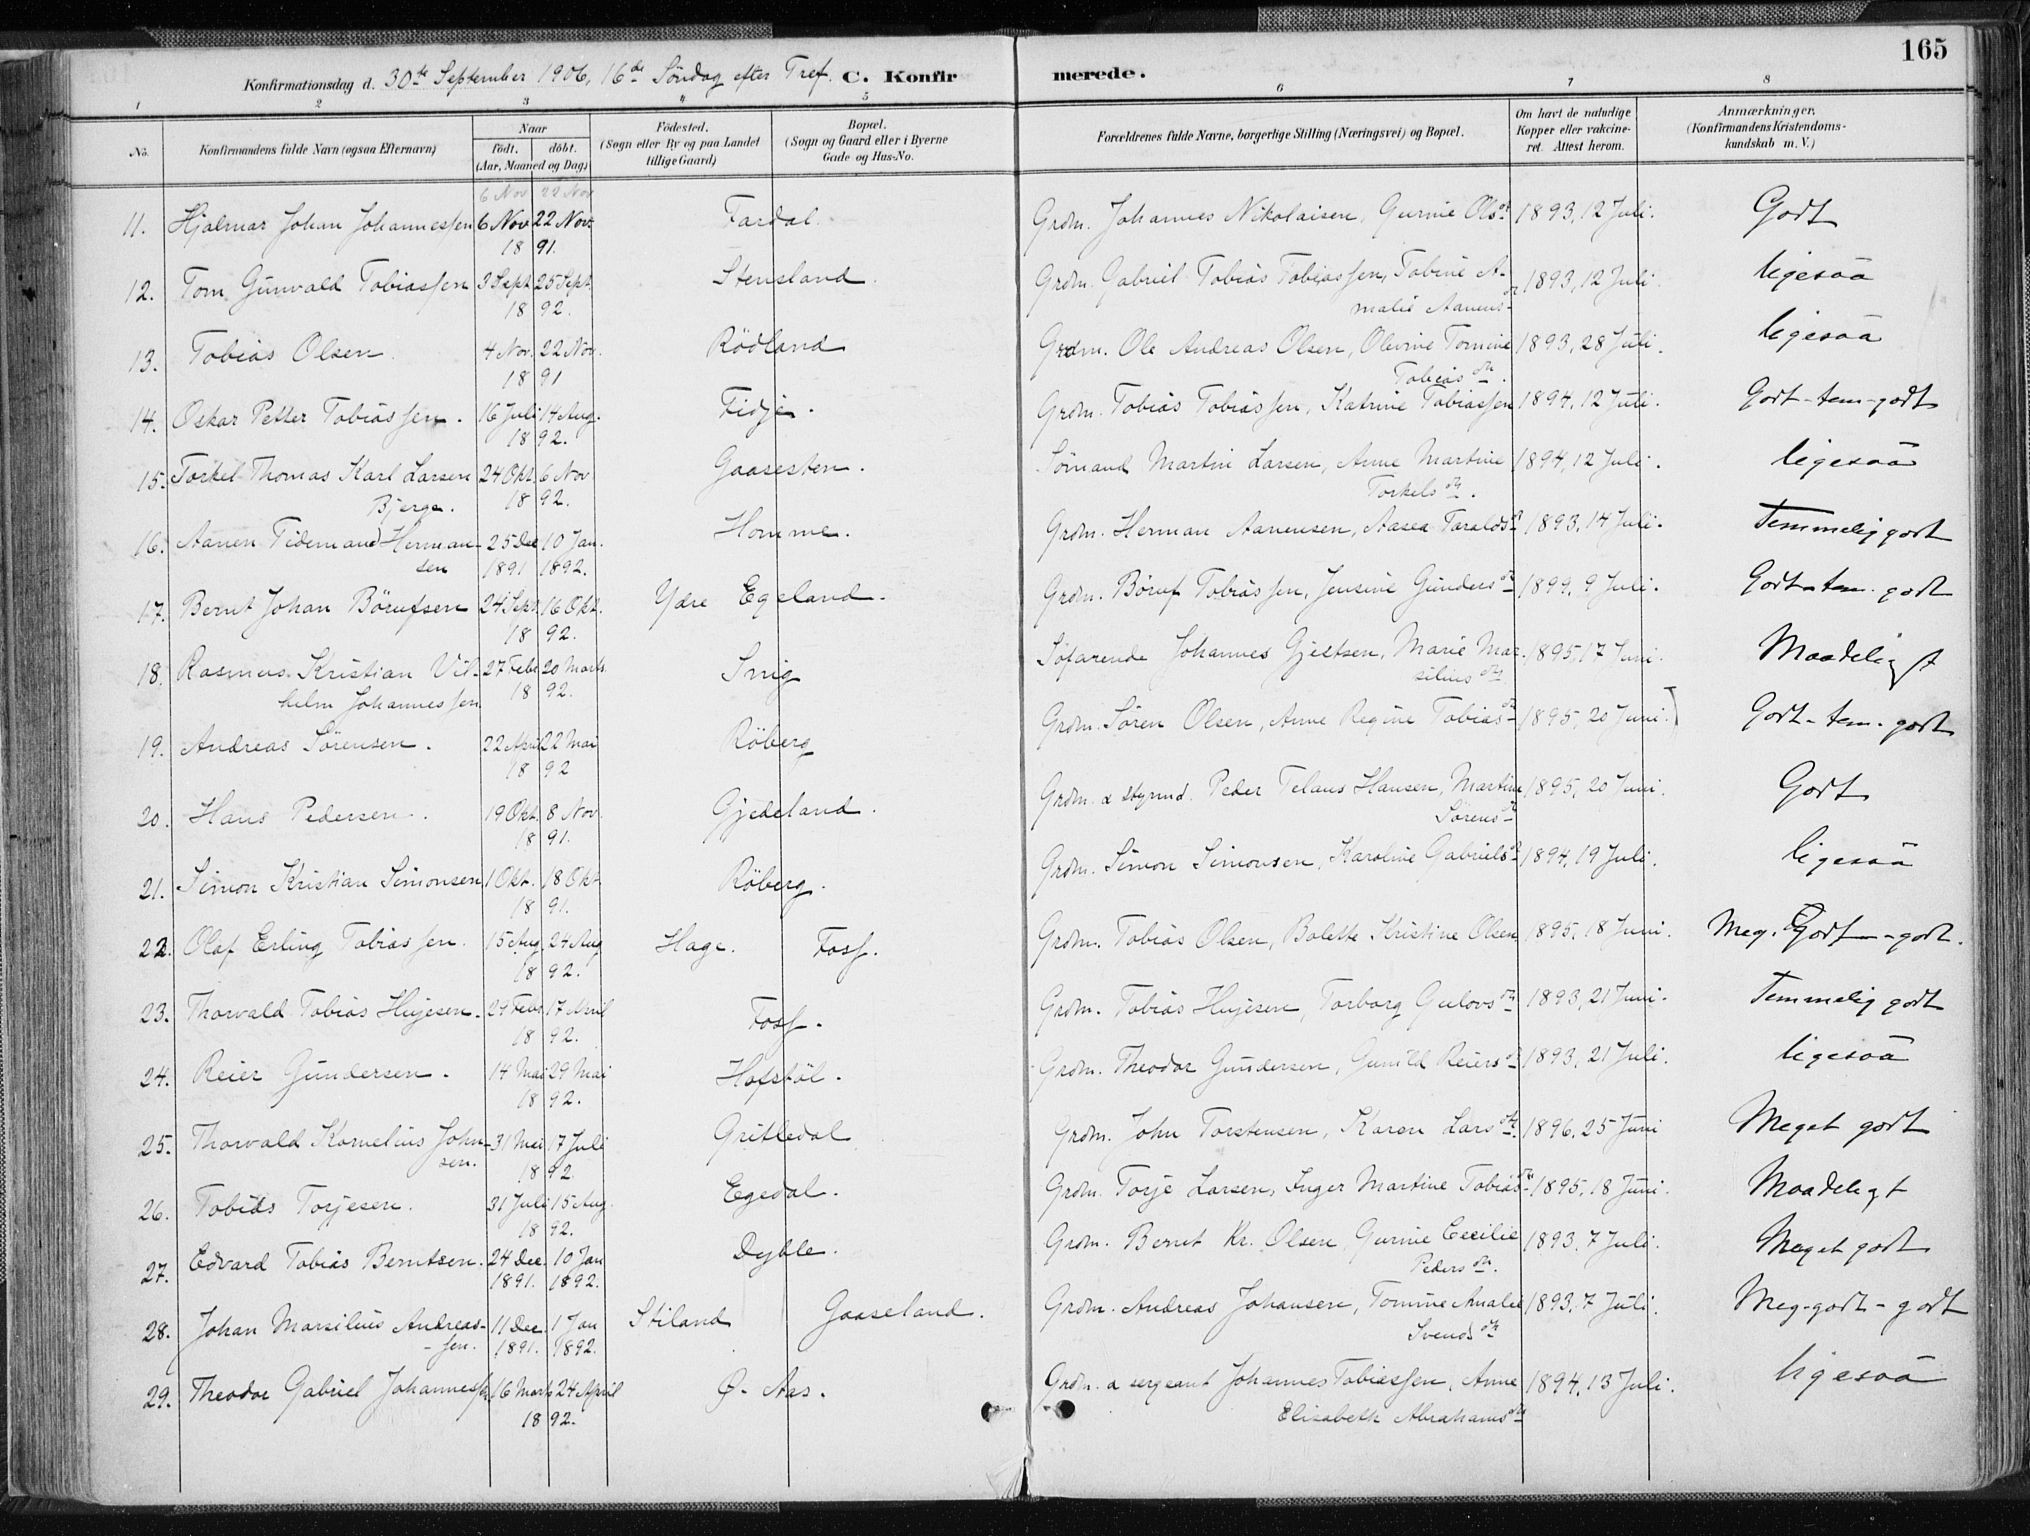 165
Konfirmationsdag d. 30te September 1906, 16de Söndag efter Tref. C. Konfirmerede.
1 2 3 4 5 6 7 8
No. Konfirmandens fulde Navn (ogsaa Efternavn) Naar Födt. döbt. (Aar, Maaned og Dag) Födested. (Sogn eller By og paa Landet tillige Gaard) Bopæl. (Sogn og Gaard eller i Byerne Gade og Hus-No. Forældrenes fulde Navne, borgerlige Stilling (Næringsvei) og Bopæl. Om havt de naturlige Kopper eller vakcineret. Attest herom. Anmærkninger, (Konfirmandens Kristendomskundskab m. V.)
6 Nov 22 Nov
11. Hjalmar Johan Johannessen 6 Nov 22 Nov. Fardal. Grdm. Johannes Nikolaisen, Gurine Olsdr 1893, 12 Juli. Godt
18 91.
12. Tom Gunvald Tobiassen 3 Sept. 25 Sept. Stensland. Grdm. Gabriel Tobias Tobiassen, Tobine A- 1893, 12 Juli. ligesaa
18 92. malie Aanens-dr
13. Tobias Olsen. 4 Nov. 22 Nov. Rödland Grdm. Ole Andreas Olsen, Olevine Tomine 1893, 28 Juli. ligesaa
18 91 Tobias dtr.
14. Oskar Petter Tobiassen. 16 Juli 14 Aug. Fidje. Grdm. Tobias Tobiassen, Katrine Tobiassen 1894, 12 Juli. Godt-tem-godt
18 92.
15. Torkel Thomas Karl Larsen 24 Okt. 6 Nov Gaasesten. Sömand Martin Larsen, Anne Martine 1894, 12 Juli. ligesaa
Bjerge. 18 92. Torkels dtr.
16. Aanen Tidemand Herman- 25 Dec 10 Jan. Homme. Grdm. Herman Aanensen, Aasea Taraldsdr 1893, 14 Juli. Temmelig godt
sen 1891 1892.
17. Bernt Johan Börufsen 24 Sept. 16 Okt. Ydre Egeland. Grdm. Böruf Tobiassen, Jensine Gundersdtr 1899, 9 Juli. Godt-tem. godt
18 92.
18. Rasmus Kristian Vil- 27 Febr 20 Marts. Snig Söfarende Johannes Gjertsen, Marie Mar- 1895, 17 Juni. Maadeligt
helm Johannessen 18 92. silius dtr
19. Andreas Sörensen. 22 April 22 Mai Röberg Grdm. Sören Olsen, Anne Regine Tobiasdtr 1895, 20 Juni. Godt-tem-godt
18 92
20. Hans Pedersen. 19 Okt. 8 Nov. Gjedeland. Grdm. & styrmd. Peder Telaus Hansen, Martine 1895, 20 Juni. Godt
18 91. Sörensdr
21. Simon Kristian Simonsen 1 Okt. 18 Okt Röberg. Grdm. Simon Simonsen, Karoline Gabrielsdr 1894, 19 Juli. ligesaa
18 91.
22. Olaf Erling Tobiassen. 15 Aug. 24 Aug Hage. Foss. Grdm. Tobias Olsen, Bolette Kristine Olsen 1895, 18 Juni. Meg. Godt-godt.
18 92.
23. Thorvald Tobias Hujesen. 29 Febr. 17 April Foss. Grdm. Tobias Hujesen, Torborg Gulovsdtr 1893, 21 Juni. Temmelig godt
18 92.
24. Reier Gundersen. 14 Mai 29 Mai Hofstöl. Grdm. Theodor Gundersen, Gunild Reiersdtr 1893, 21 Juli. ligesaa
18 92.
25. Thorvald Kornelius John- 31 Mai 17 Juli Gritledal Grdm. John Torstensen, Karen Lars dtr. 1896, 25 Juni Meget godt
sen. 18 92
26. Tobias Torjesen. 31 Juli 15 Aug. Egedal. Grdm. Torje Larsen, Inger Martine Tobiasdtr 1895, 18 Juni. Maadeligt
18 92.
27. Edvard Tobias Berntsen. 24 Dec. 10 Jan Dyble. Grdm. Bernt Kr. Olsen, Gurine Cecilie 1893, 7 Juli. Meget godt
1891. 1892. Peders dtr.
28. Johan Marsilius Andreas- 11 Dec. 1 Jan Stiland Gaaseland. Grdm. Andreas Johansen, Tomine Amalie 1893, 7 Juli. Meg-godt-godt
-sen. 1891. 1892. Svends dtr
29. Theodor Gabriel Johannessen 16 Marts 24 April Ö. Aas. Grdm. & sergeant Johannes Tobiassen, Anne 1894, 13 Juli. ligesaa
18 92. Elisabeth Abrahamsdtr